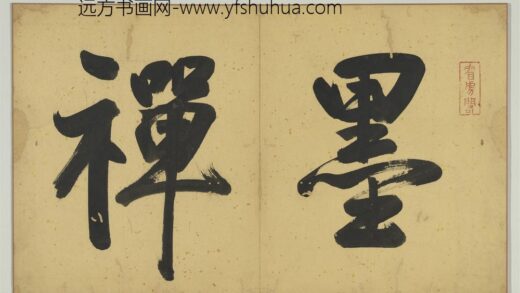 远方书画网-www.yfshuhua.com
墨禪